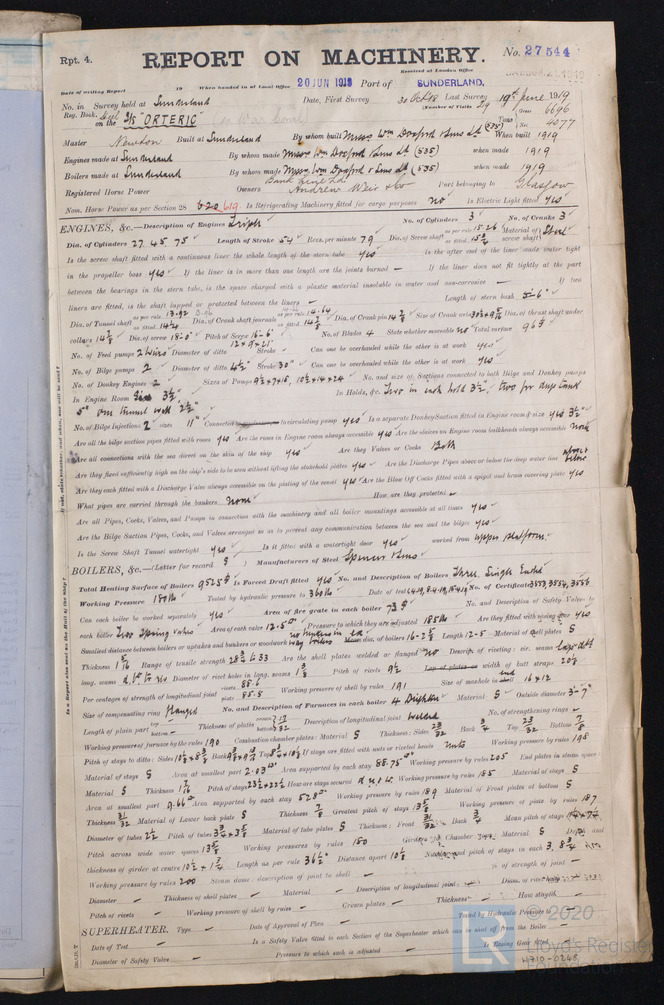 Rpt. 4.
REPORT ON MACHINERY.
No. 27544
Received at London Office
Date of writing Report 19 When handed in at Local Office 20 JUN 1919 Port of SUNDERLAND.
No. in Survey held at Sunderland Date, First Survey 30 Oct 18 Last Survey 19th June 1919
Reg. Book. (Number of Visits 29
on the S/S "ORTERIC" Gross 6696
Tons Net 4077
Master Newton Built at Sunderland By whom built Messrs Wm Doxford & Sons Ld (535) When built 1919
Engines made at Sunderland By whom made Messrs Wm Doxford & Sons Ld (535) when made 1919
Boilers made at Sunderland By whom made Messrs Wm Doxford & Sons Ld (535) when made 1919
Registered Horse Power Owners Bank Line Ld. Andrew Weir & Co Port belonging to Glasgow
Nom. Horse Power as per Section 28 620 619 Is Refrigerating Machinery fitted for cargo purposes no Is Electric Light fitted yes
ENGINES, &c.—Description of Engines Triple No. of Cylinders 3 No. of Cranks 3
Dia. of Cylinders 27. 45. 75 Length of Stroke 54 Revs. per minute 79 Dia. of Screw shaft as per rule 15.26 as fitted 15 3/4 Material of screw shaft Steel
Is the screw shaft fitted with a continuous liner the whole length of the stern tube yes Is the after end of the liner made water tight
in the propeller boss yes If the liner is in more than one length are the joints burned — If the liner does not fit tightly at the part
between the bearings in the stern tube, is the space charged with a plastic material insoluble in water and non-corrosive — If two
liners are fitted, is the shaft lapped or protected between the liners — Length of stern bush 5-6"
Dia. of Tunnel shaft as per rule 13.92 as fitted 14 1/4 Dia. of Crank shaft journals as per rule 14.64 as fitted 14 7/8 Dia. of Crank pin 14 7/8 Size of Crank webs Dia. of thrust shaft under
collars 14 7/8 Dia. of screw 18-0 Pitch of Screw 16-6 No. of Blades 4 State whether moveable no Total surface 96
No. of Feed pumps 2 Weirs Diameter of ditto 12 x 9 x 21 Stroke — Can one be overhauled while the other is at work yes
No. of Bilge pumps 2 Diameter of ditto 4 1/2 Stroke 30" Can one be overhauled while the other is at work yes
No. of Donkey Engines 2 Sizes of Pumps 9 1/2 x 7 x 18, 10 1/2 x 14 x 24 No. and size of Suctions connected to both Bilge and Donkey pumps
In Engine Room 3 1/2" In Holds, &c. Two in each hold 3 1/2", two for deep tank
5" one tunnel well 2 1/2"
No. of Bilge Injections 2 sizes 11" Connected to circulating pump yes Is a separate Donkey Suction fitted in Engine room & size yes 3 1/2"
Are all the bilge suction pipes fitted with roses yes Are the roses in Engine room always accessible yes Are the sluices on Engine room bulkheads always accessible none
Are all connections with the sea direct on the skin of the ship yes Are they Valves or Cocks Both
Are they fixed sufficiently high on the ship's side to be seen without lifting the stokehold plates yes Are the Discharge Pipes above or below the deep water line above & below
Are they each fitted with a Discharge Valve always accessible on the plating of the vessel yes Are the Blow Off Cocks fitted with a spigot and brass covering plate yes
What pipes are carried through the bunkers none How are they protected —
Are all Pipes, Cocks, Valves, and Pumps in connection with the machinery and all boiler mountings accessible at all times yes
Are the Bilge Suction Pipes, Cocks, and Valves arranged so as to prevent any communication between the sea and the bilges yes
Is the Screw Shaft Tunnel watertight yes Is it fitted with a watertight door yes worked from upper platform
BOILERS, &c.—(Letter for record S) Manufacturers of Steel Spencer & Sons
Total Heating Surface of Boilers 9525 Is Forced Draft fitted yes No. and Description of Boilers Three, Single Ended
Working Pressure 180 lb Tested by hydraulic pressure to 360 lb Date of test No. of Certificate 3553, 3554, 3556
Can each boiler be worked separately yes Area of fire grate in each boiler 73 No. and Description of Safety Valves to
each boiler Two Spring Valves Area of each valve 12.5 Pressure to which they are adjusted 185 lb Are they fitted with easing gear yes
Smallest distance between boilers or uptakes and bunkers or woodwork dia. of boilers 16-2 Length 12-5 Material of shell plates S
Thickness 1 5/16 Range of tensile strength 28 3/4 to 33 Are the shell plates welded or flanged no Descrip. of riveting: cir. seams
long. seams Diameter of rivet holes in long. seams 1 3/8 Pitch of rivets 9 1/2 width of butt straps 20
Per centages of strength of longitudinal joint rivets 88.6 plate 85.5 Working pressure of shell by rules 191 Size of manhole in end 16 x 12
Size of compensating ring flanged No. and Description of Furnaces in each boiler 4 Deighton Material S Outside diameter 3-7"
Length of plain part top bottom Thickness of plates Description of longitudinal joint welded No. of strengthening rings —
Working pressure of furnace by the rules 190 Combustion chamber plates: Material S Thickness: Sides 23/32 Back 3/4 Top 23/32 Bottom 7/8
Pitch of stays to ditto: Sides Back Top If stays are fitted with nuts or riveted heads nuts Working pressure by rules 198
Material of stays S Area at smallest part 2.03 Area supported by each stay 88.75 Working pressure by rules 205 End plates in steam space:
Material S Thickness 1 7/16 Pitch of stays 23 1/2 x 22 1/2 How are stays secured Working pressure by rules 185 Material of stays S
Area at smallest part 9.66 Area supported by each stay 528 Working pressure by rules 189 Material of Front plates at bottom S
Thickness 31/32 Material of Lower back plate S Thickness 7/8 Greatest pitch of stays Working pressure of plate by rules 187
Diameter of tubes 2 1/2 Pitch of tubes Material of tube plates S Thickness: Front 31/32 Back 3/4 Mean pitch of stays
Pitch across wide water spaces 13 3/4 Working pressures by rules 180 Girders to Chamber tops: Material S Depth and
thickness of girder at centre Length as per rule 36 1/2 Distance apart 10 1/8 Number and pitch of stays in each 3, 8 3/4
Working pressure by rules 200 Steam dome: description of joint to shell — % of strength of joint —
Diameter — Thickness of shell plates — Material — Description of longitudinal joint — Diam. of rivet holes
Pitch of rivets — Working pressure of shell by rules — Crown plates — Thickness — How stayed —
SUPERHEATER. Type — Date of Approval of Plan — Tested by Hydraulic Pressure to
Date of Test — Is a Safety Valve fitted to each Section of the Superheater which can be shut off from the Boiler —
Diameter of Safety Valve — Pressure to which each is adjusted — Is Easing Gear fitted
© 2020
Lloyd's Register
Foundation
LR
H710-0248